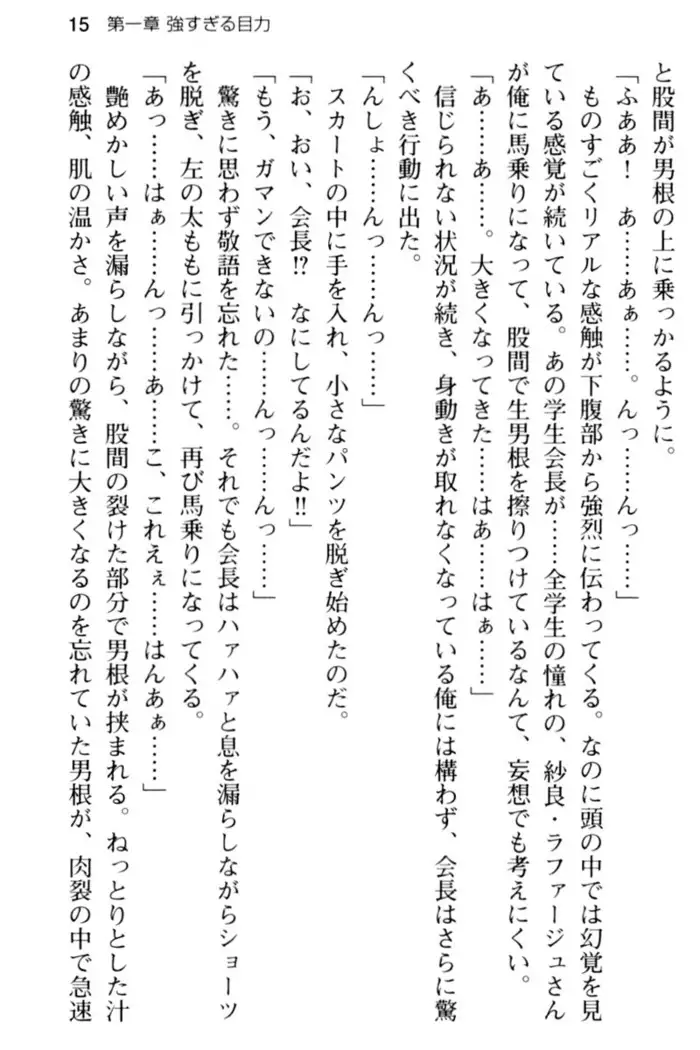 15 第一章 強すぎる目力
と股間が男根の上に乗っかるように。
「ふああ！　あ……あぁ……。んっ……んっ……」
ものすごくリアルな感触が下腹部から強烈に伝わってくる。なのに頭の中では幻覚を見
ている感覚が続いている。あの学生会長が……全学生の憧れの、紗良・ラファージュさん
が俺に馬乗りになって、股間で生男根を擦りつけているなんて、妄想でも考えにくい。
「あ……あ……。大きくなってきた……はあ……はぁ……」
信じられない状況が続き、身動きが取れなくなっている俺には構わず、会長はさらに驚
くべき行動に出た。
「んしょ……んっ……んっ……」
スカートの中に手を入れ、小さなパンツを脱ぎ始めたのだ。
「お、おい、会長!?　なにしてるんだよ!!」
「もう、ガマンできないの……んっ……んっ……」
驚きに思わず敬語を忘れた……。それでも会長はハァハァと息を漏らしながらショーツ
を脱ぎ、左の太ももに引っかけて、再び馬乗りになってくる。
「あっ……はぁ……んっ……あ……こ、これえぇ……はんあぁ……」
艶めかしい声を漏らしながら、股間の裂けた部分で男根が挟まれる。ねっとりとした汁
の感触、肌の温かさ。あまりの驚きに大きくなるのを忘れていた男根が、肉裂の中で急速